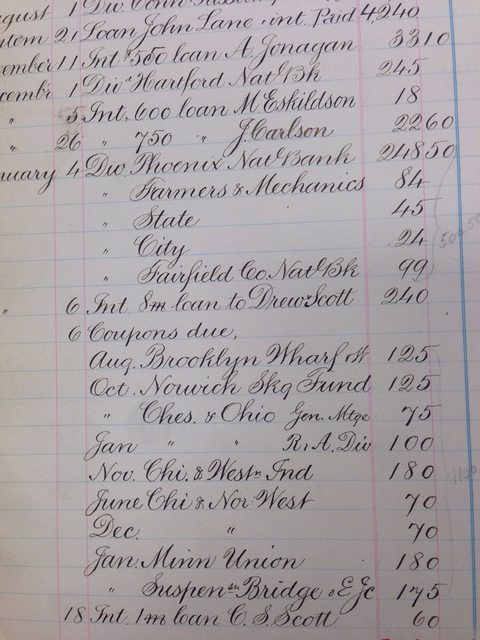 August 1 Div. Conn
21 Loan John Lane, int. Paid 4240
11 Int $550 loan A. Jonagan 3310
1 Div Hartford Natl Bk 245
" 5 Int. 600 loan M Eskildson 18
" 26 " 750 " J. Carlson 2260
4 Div. Phoenix Natl Bank 24850
" Farmers & Mechanics 84
" State 45
" City 24
" Fairfield Co. Natl Bk 99
" 6 Int 8m loan to Drew Scott 240
6 Coupons due,
Aug. Brooklyn Wharf & W 125
Oct. Norwich Skg Fund 125
" Ches. & Ohio Gen. Mtge 75
Jan " " R. & A. Div 100
Nov. Chi. & Westn Ind 180
June Chi & Nor. West 70
Dec. " 70
Jan. Minn Union 180
" Suspensn Bridge & E Jc 175
18 Int. 1m loan C. S. Scott 60